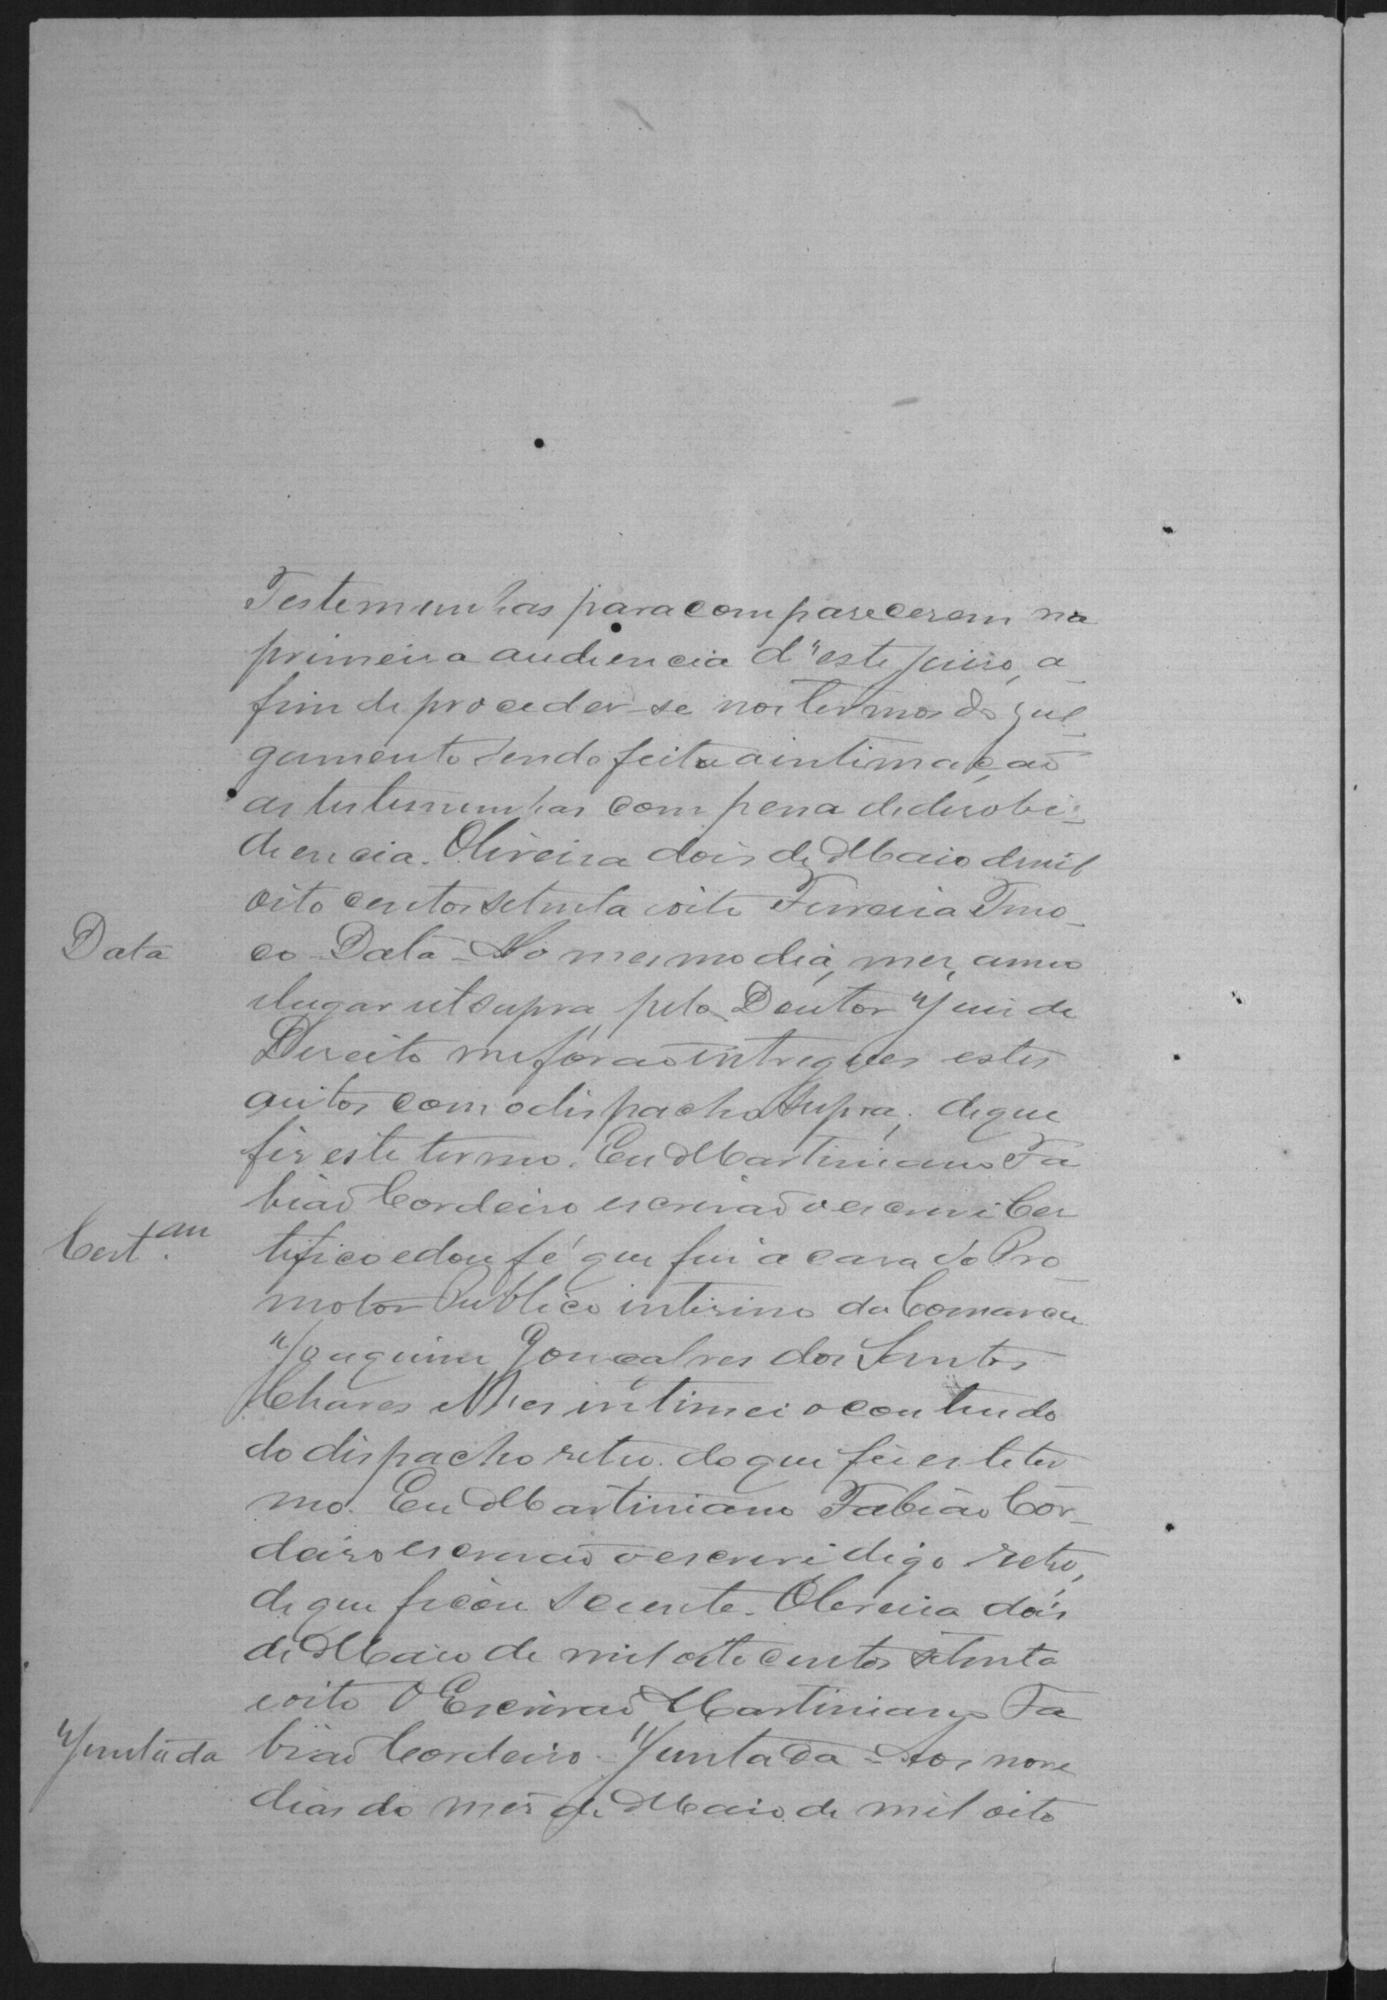 Testemunhas para comparecerem na
primeira audiencia d'este Juiso, a
fim de proceder-se nos termos do jul
gamento sendo feita a intimação
as testemunhas com pena de desobe-
diencia. Oliveira dois de Maio de mil
oito centos setenta e oito Ferreira Tino
co Data - No mesmo dia, mez, anno
Data
e lugar ut supra, pelo Doutor Juiz de
Direito me forão entregues estes
autos com o dispacho supra; de que
fiz este termo. Eu Martiniano Fa
bião Cordeiro escrivão o escrevi Cer
Cert.am
tifico e dou fé que fui a casa do Pro
motor Publico interino da Comarca
Joaquim Gonçalves dos Santos
Chaves e lhes intimei o contheudo
do dispacho retro. do que fiz este ter
mo. Eu Martiniano Fabião Cor-
deiro escrivão o escrevi digo retro,
de que ficou sciente. Oliveira dois
de Maio de mil oito centos setenta
e oito O Escrivão Martiniano Fa
bião Cordeiro. Juntada - Aos nove
Juntada
dias do mez de Maio de mil oito